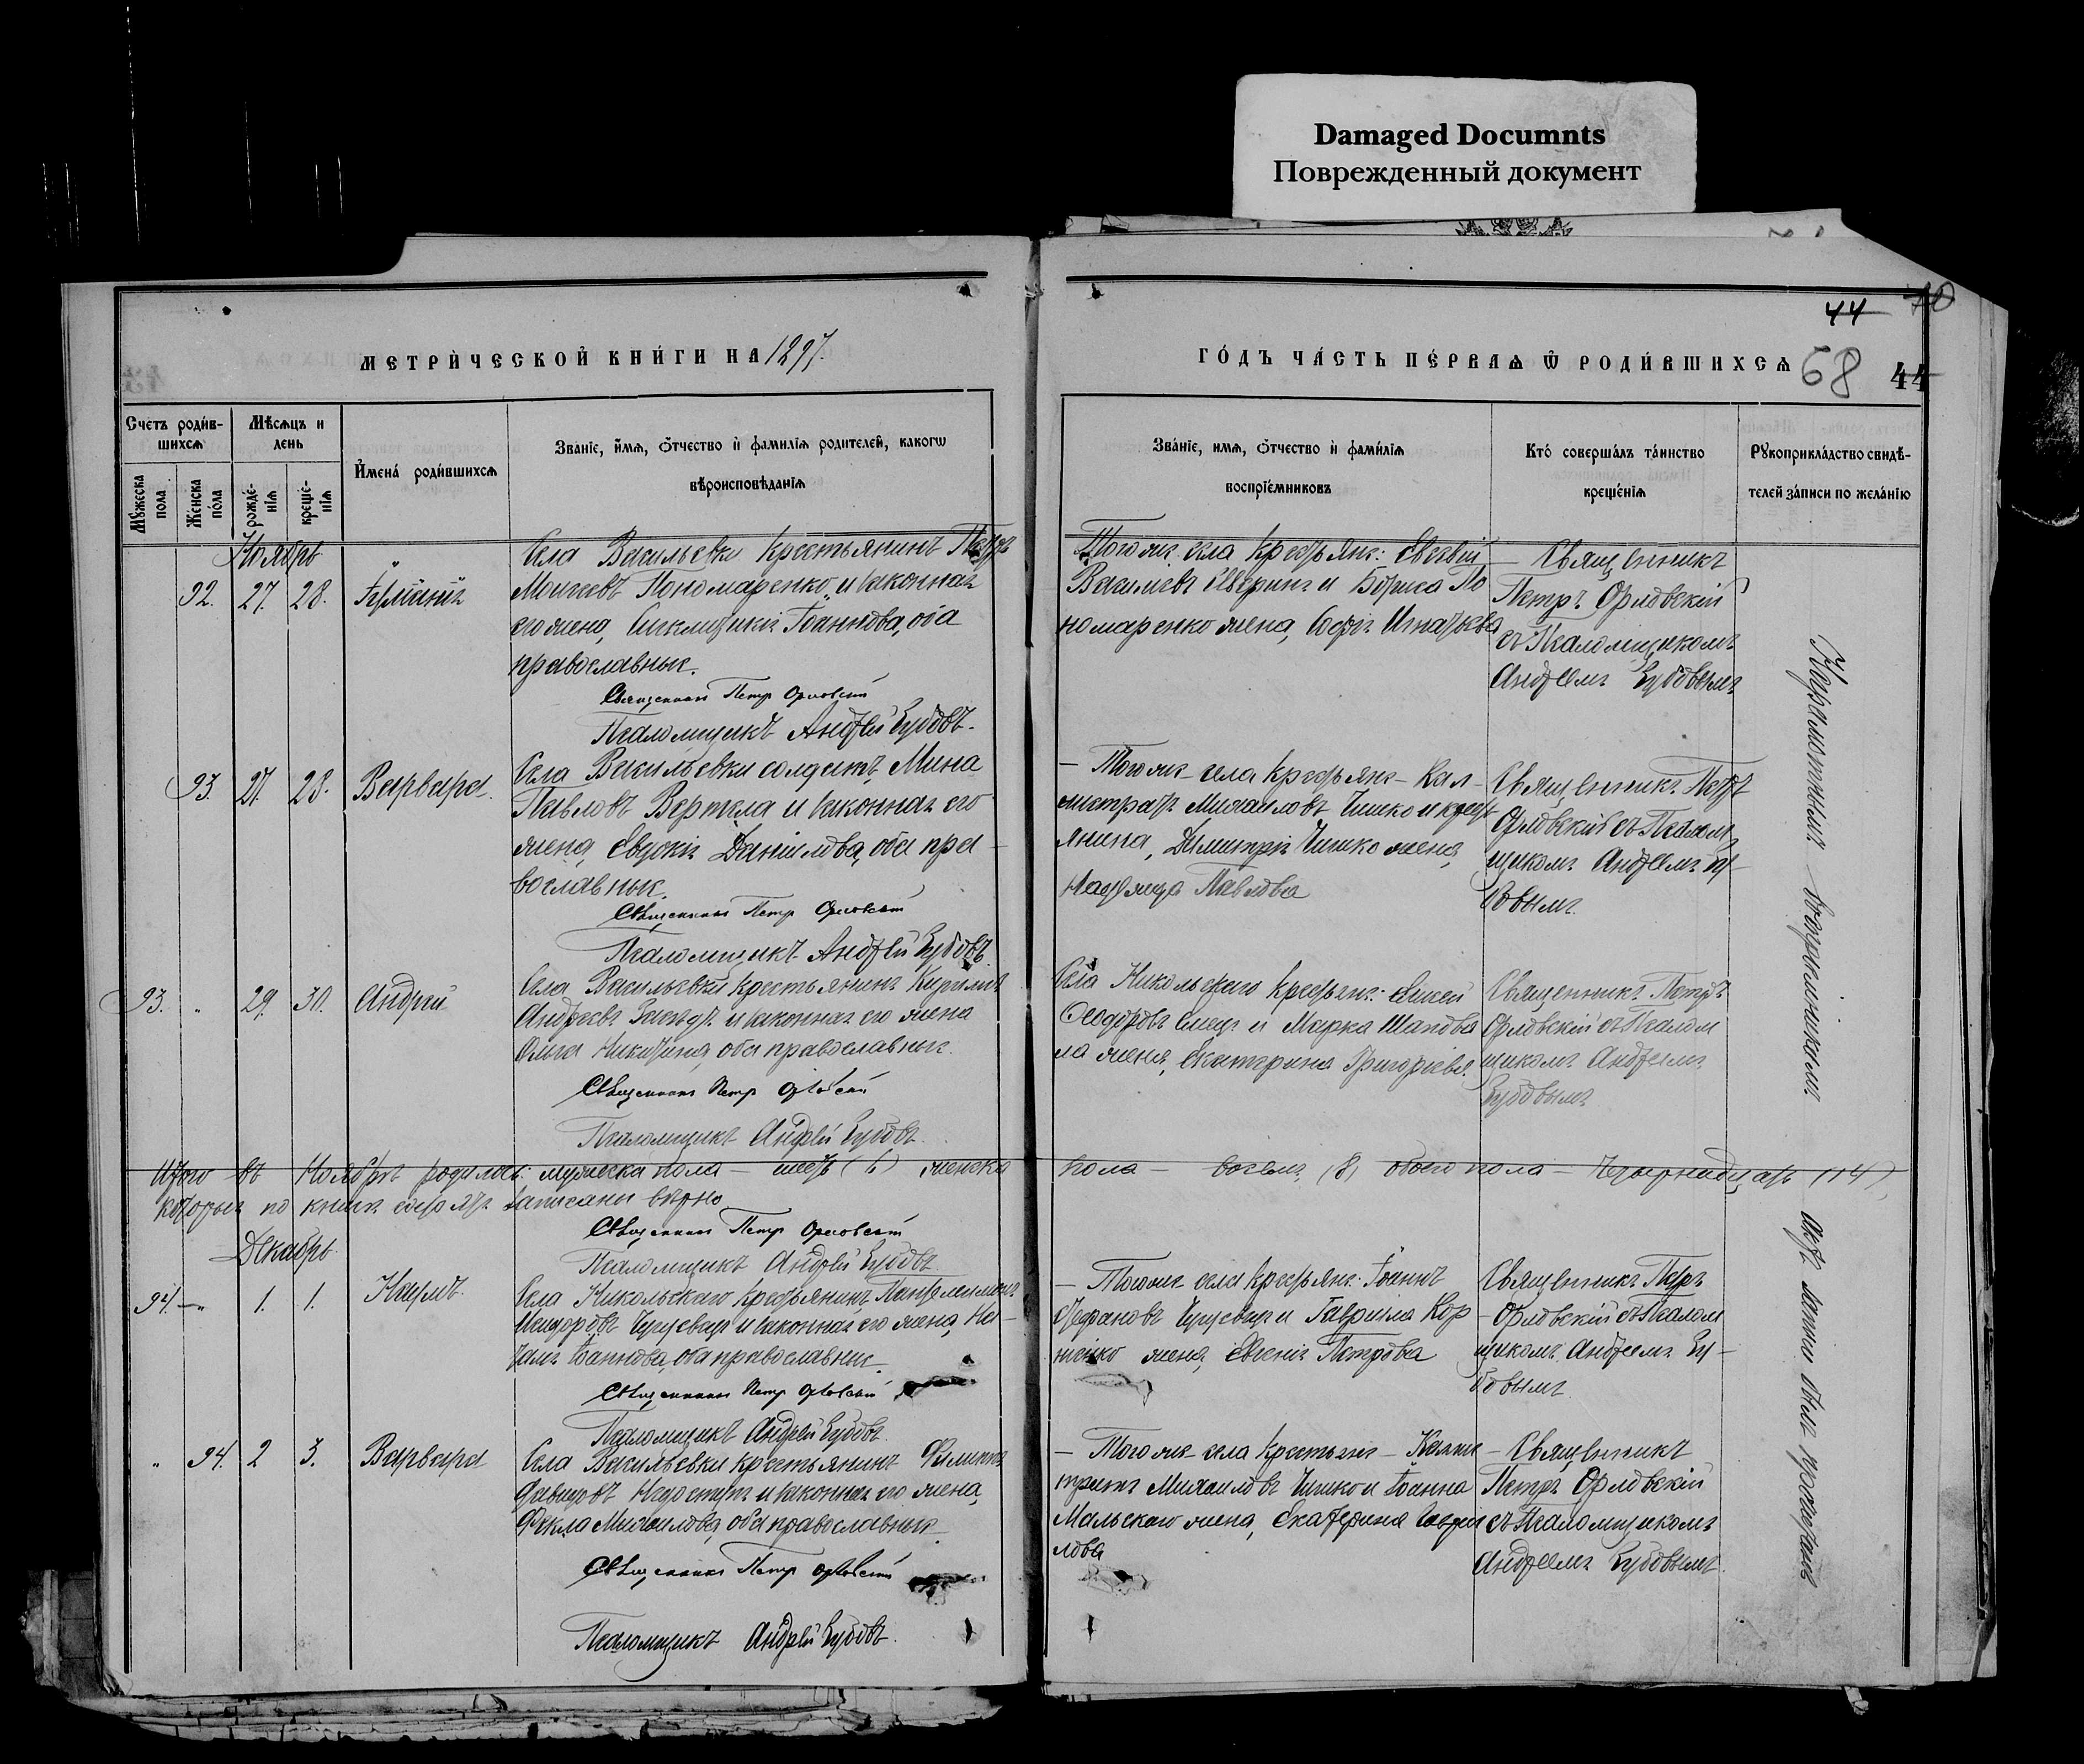 Damaged Documnts
Поврежденный документ
44 70
МЕТРИЧЕСКОЙ КНИГИ НА 1897.
ГОДЪ ЧАСТЬ ПЕРВАѦ Ѿ РОДИВШИХСѦ 68 44
Счетъ родив-
шихсѧ
Мужеска пола
Женска пола
Мѣсѧцъ и
день
рожде-
нїѧ
креще-
нїѧ
Имена родившихсѧ
Званїе, имѧ, ѻтчество и фамилїѧ родителей, какогѡ
вѣроисповѣданїѧ
Званїе, имѧ, ѻтчество и фамилїѧ
воспрїемниковъ
Кто совершалъ таинство
крещенїѧ
Рукоприкладство свидѣ-
телей записи по желанїю
Ноябрь
92. 27. 28.
Села Васильевки крестьянинъ Петръ
Моисеевъ Пономаренко и законная
его жена, Іоаннова, оба
православные.
Священникъ Петр Орловский
Псаломщикъ Андрей Зубовъ.
Того же села крестьян: Евсевій
Васильевъ и Бориса По
номаренко жена, Софія Игнатьева
Священникъ
Петръ Орловскій
съ Псаломщикомъ
Андреемъ Зубовымъ
93. 27. 28. Варвара.
Села Васильевки солдатъ Мина
Павловъ Вертела и законная его
жена, Евдокія Даніилова, оба пра-
вославные.
Священникъ Петр Орловский
Псаломщикъ Андрей Зубовъ.
– Того же села крестьян – Кал-
листратъ Михаиловъ Чишко и крест
янина, Димитрія Чишко жена,
Павлова
Священникъ Петръ
Орловскій съ Псалом
щикомъ Андреемъ Зу-
бовымъ.
93. " 29. 30. Андрей
Села Васильевки крестьянинъ Кириллъ
Андреевъ и законная его жена
Ольга Никитина, оба православные.
Священникъ Петр Орловский
Псаломщикъ Андрей Зубовъ.
Села Никольского крестьян:
Феодоровъ и Марка Шапова
ла жена, Екатерина Григорьева.
Священникъ Петръ
Орловскій съ Псалом
щикомъ Андреемъ
Зубовымъ
Итого въ Ноябрѣ родилось: мужеска пола – шесть (6) женска
пола – восемь (8) обоего пола – Четырнадцать (14),
которые по книге записаны вѣрно
Священникъ Петр Орловский
Псаломщикъ Андрей Зубовъ
Декабрь
94. – " 1. 1. Наумъ.
Села Никольского крестьянинъ Пантелеимонъ
и законная его жена, На-
Іоаннова, оба православные.
Священникъ Петр Орловский
Псаломщикъ Андрей Зубовъ.
– Того же села крестьян: Іоаннъ
Стефановъ и Гавриила Кор
ніенко жена, Евгенія Петрова
Священникъ Петръ
– Орловскій съ Псалом
щикомъ Андреемъ Зу-
бовымъ.
" 94. 2 3. Варвара
Села Васильевки крестьянинъ Филиппъ
Давидовъ и законная его жена,
Фекла Михаилова, оба православные
Священникъ Петр Орловский
Псаломщикъ Андрей Зубовъ.
– Того же села крестьян –
Михаиловъ Чишко и Іоанна
Мальскаго жена, Екатерина Гаврии
лова
– Священникъ
Петръ Орловскій
съ Псаломщикомъ
Андреемъ Зубовымъ.
воспріемникамъ